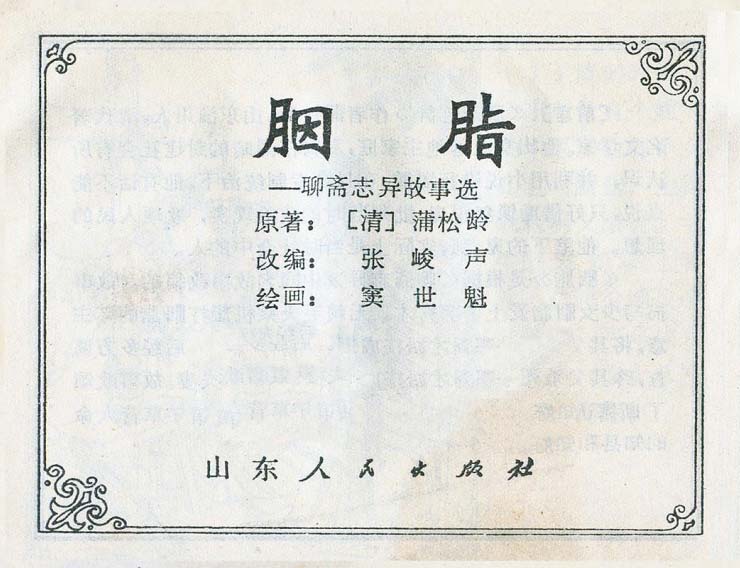 胭脂
——聊斋志异故事选
原著：［清］蒲松龄
改编：张峻声
绘画：窦世魁
山东人民出版社